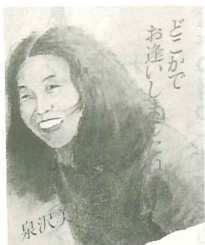 どこかで
お逢いしましょう
泉沢